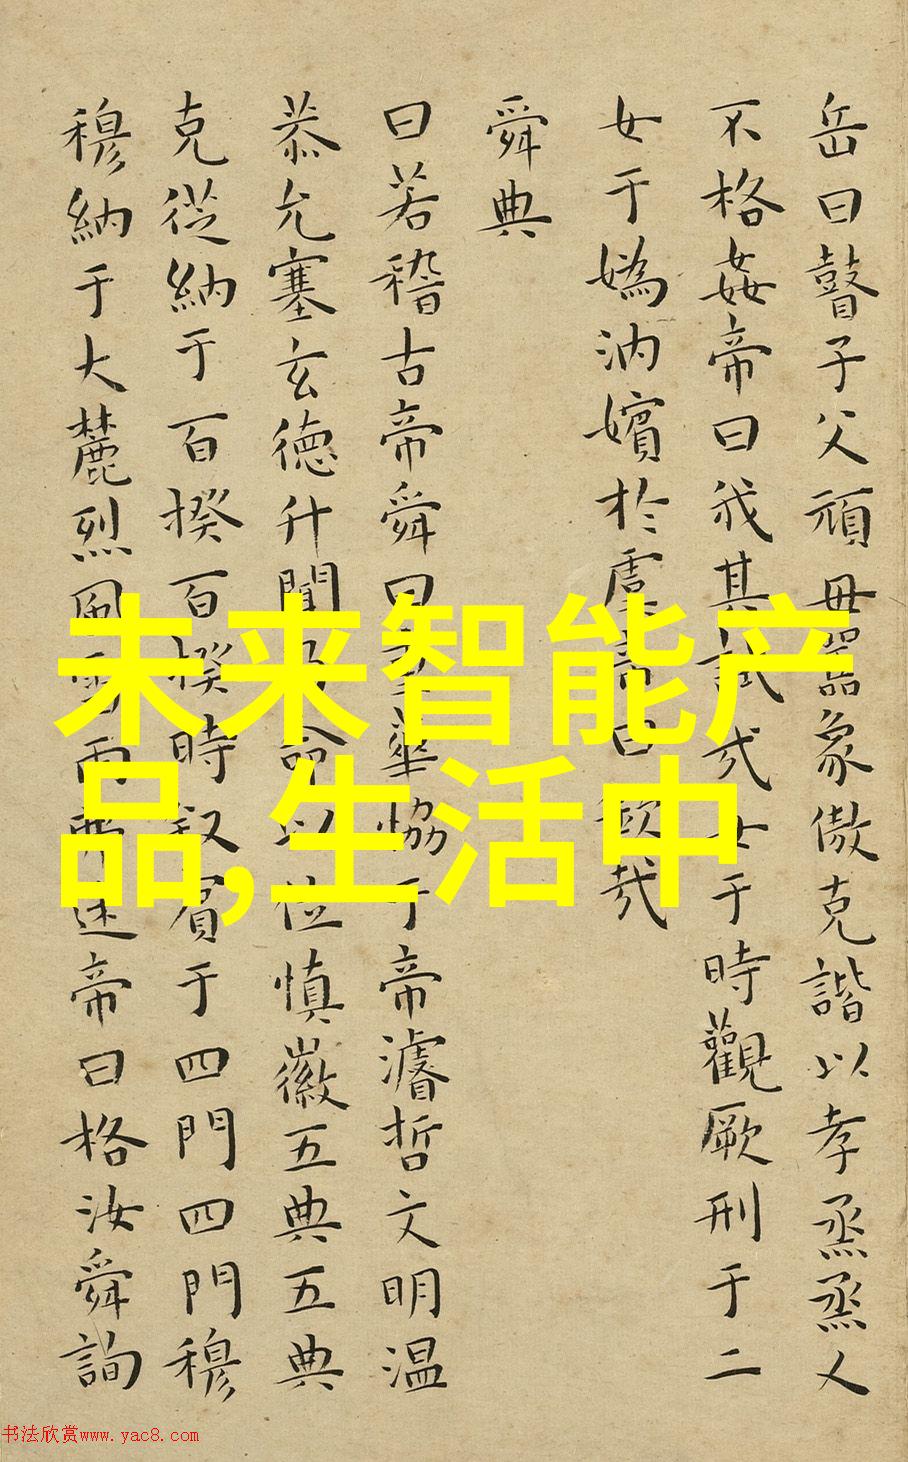 岳曰瞽子父頑母嚚象傲克諧以孝烝烝乂
不格姦帝曰我其試哉女于時觀厥刑于二
女于媯汭嬪於虞帝曰欽哉
舜典
曰若稽古帝舜曰重華恊于帝濬哲文明温
恭允塞玄徳升聞乃命以位慎徽五典五典
克從納于百揆百揆時叙賓于四門四門穆
穆納于大麓烈風雷雨弗迷帝曰格汝舜詢
未来智能产
品,生活中
书法欣赏www.yac8.com